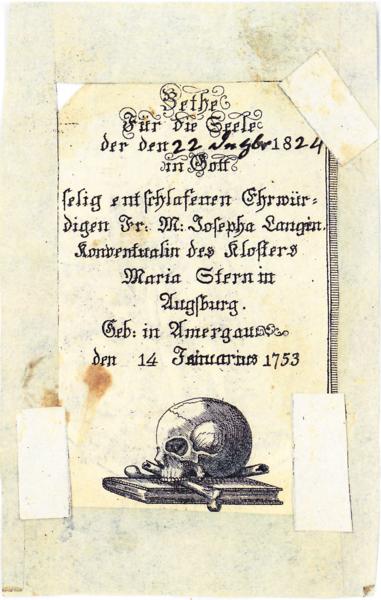 Bethe
Für die Seele
der den 22 1824
in Gott
selig entschlafenen Ehrwür=
digen Fr: M: Josepha Langin.
Konventualin des Klosters
Maria Stern in
Augsburg.
Geb: in Amergau
den 14 Jainuarius 1753